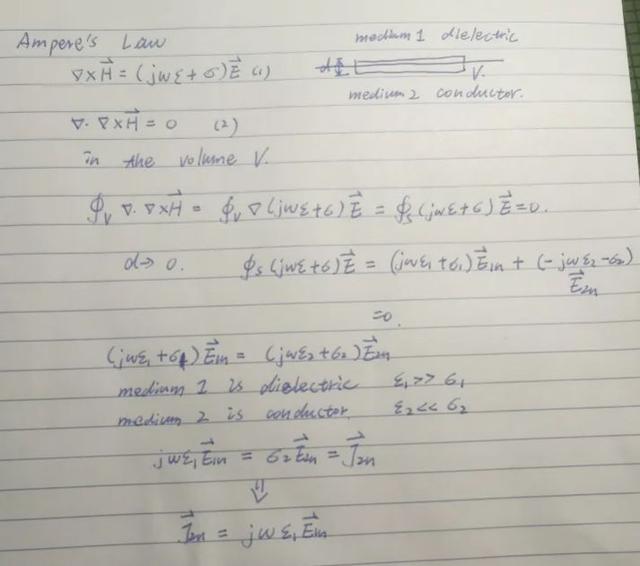 Ampere's Law
medium 1 dielectric
∇×H⃗ = (jωε + σ)E⃗ (1)
d
V.
medium 2 conductor.
∇·∇×H⃗ = 0 (2)
in the volume V.
∮ᵥ ∇·∇×H⃗ = ∮ᵥ ∇(jωε+σ)E⃗ = ∮ₛ(jωε+σ)E⃗ = 0.
d→0. ∮ₛ(jωε+σ)E⃗ = (jωε₁+σ₁)E⃗₁ₙ + (-jωε₂-σ₂)
E⃗₂ₙ
=0.
(jωε₁+σ₁)E⃗₁ₙ = (jωε₂+σ₂)E⃗₂ₙ
medium 1 is dielectric ε₁>>σ₁
medium 2 is conductor. ε₂<<σ₂
jωε₁E⃗₁ₙ = σ₂E⃗₂ₙ = J⃗₂ₙ
⇓
J⃗₂ₙ = jωε₁E⃗₁ₙ